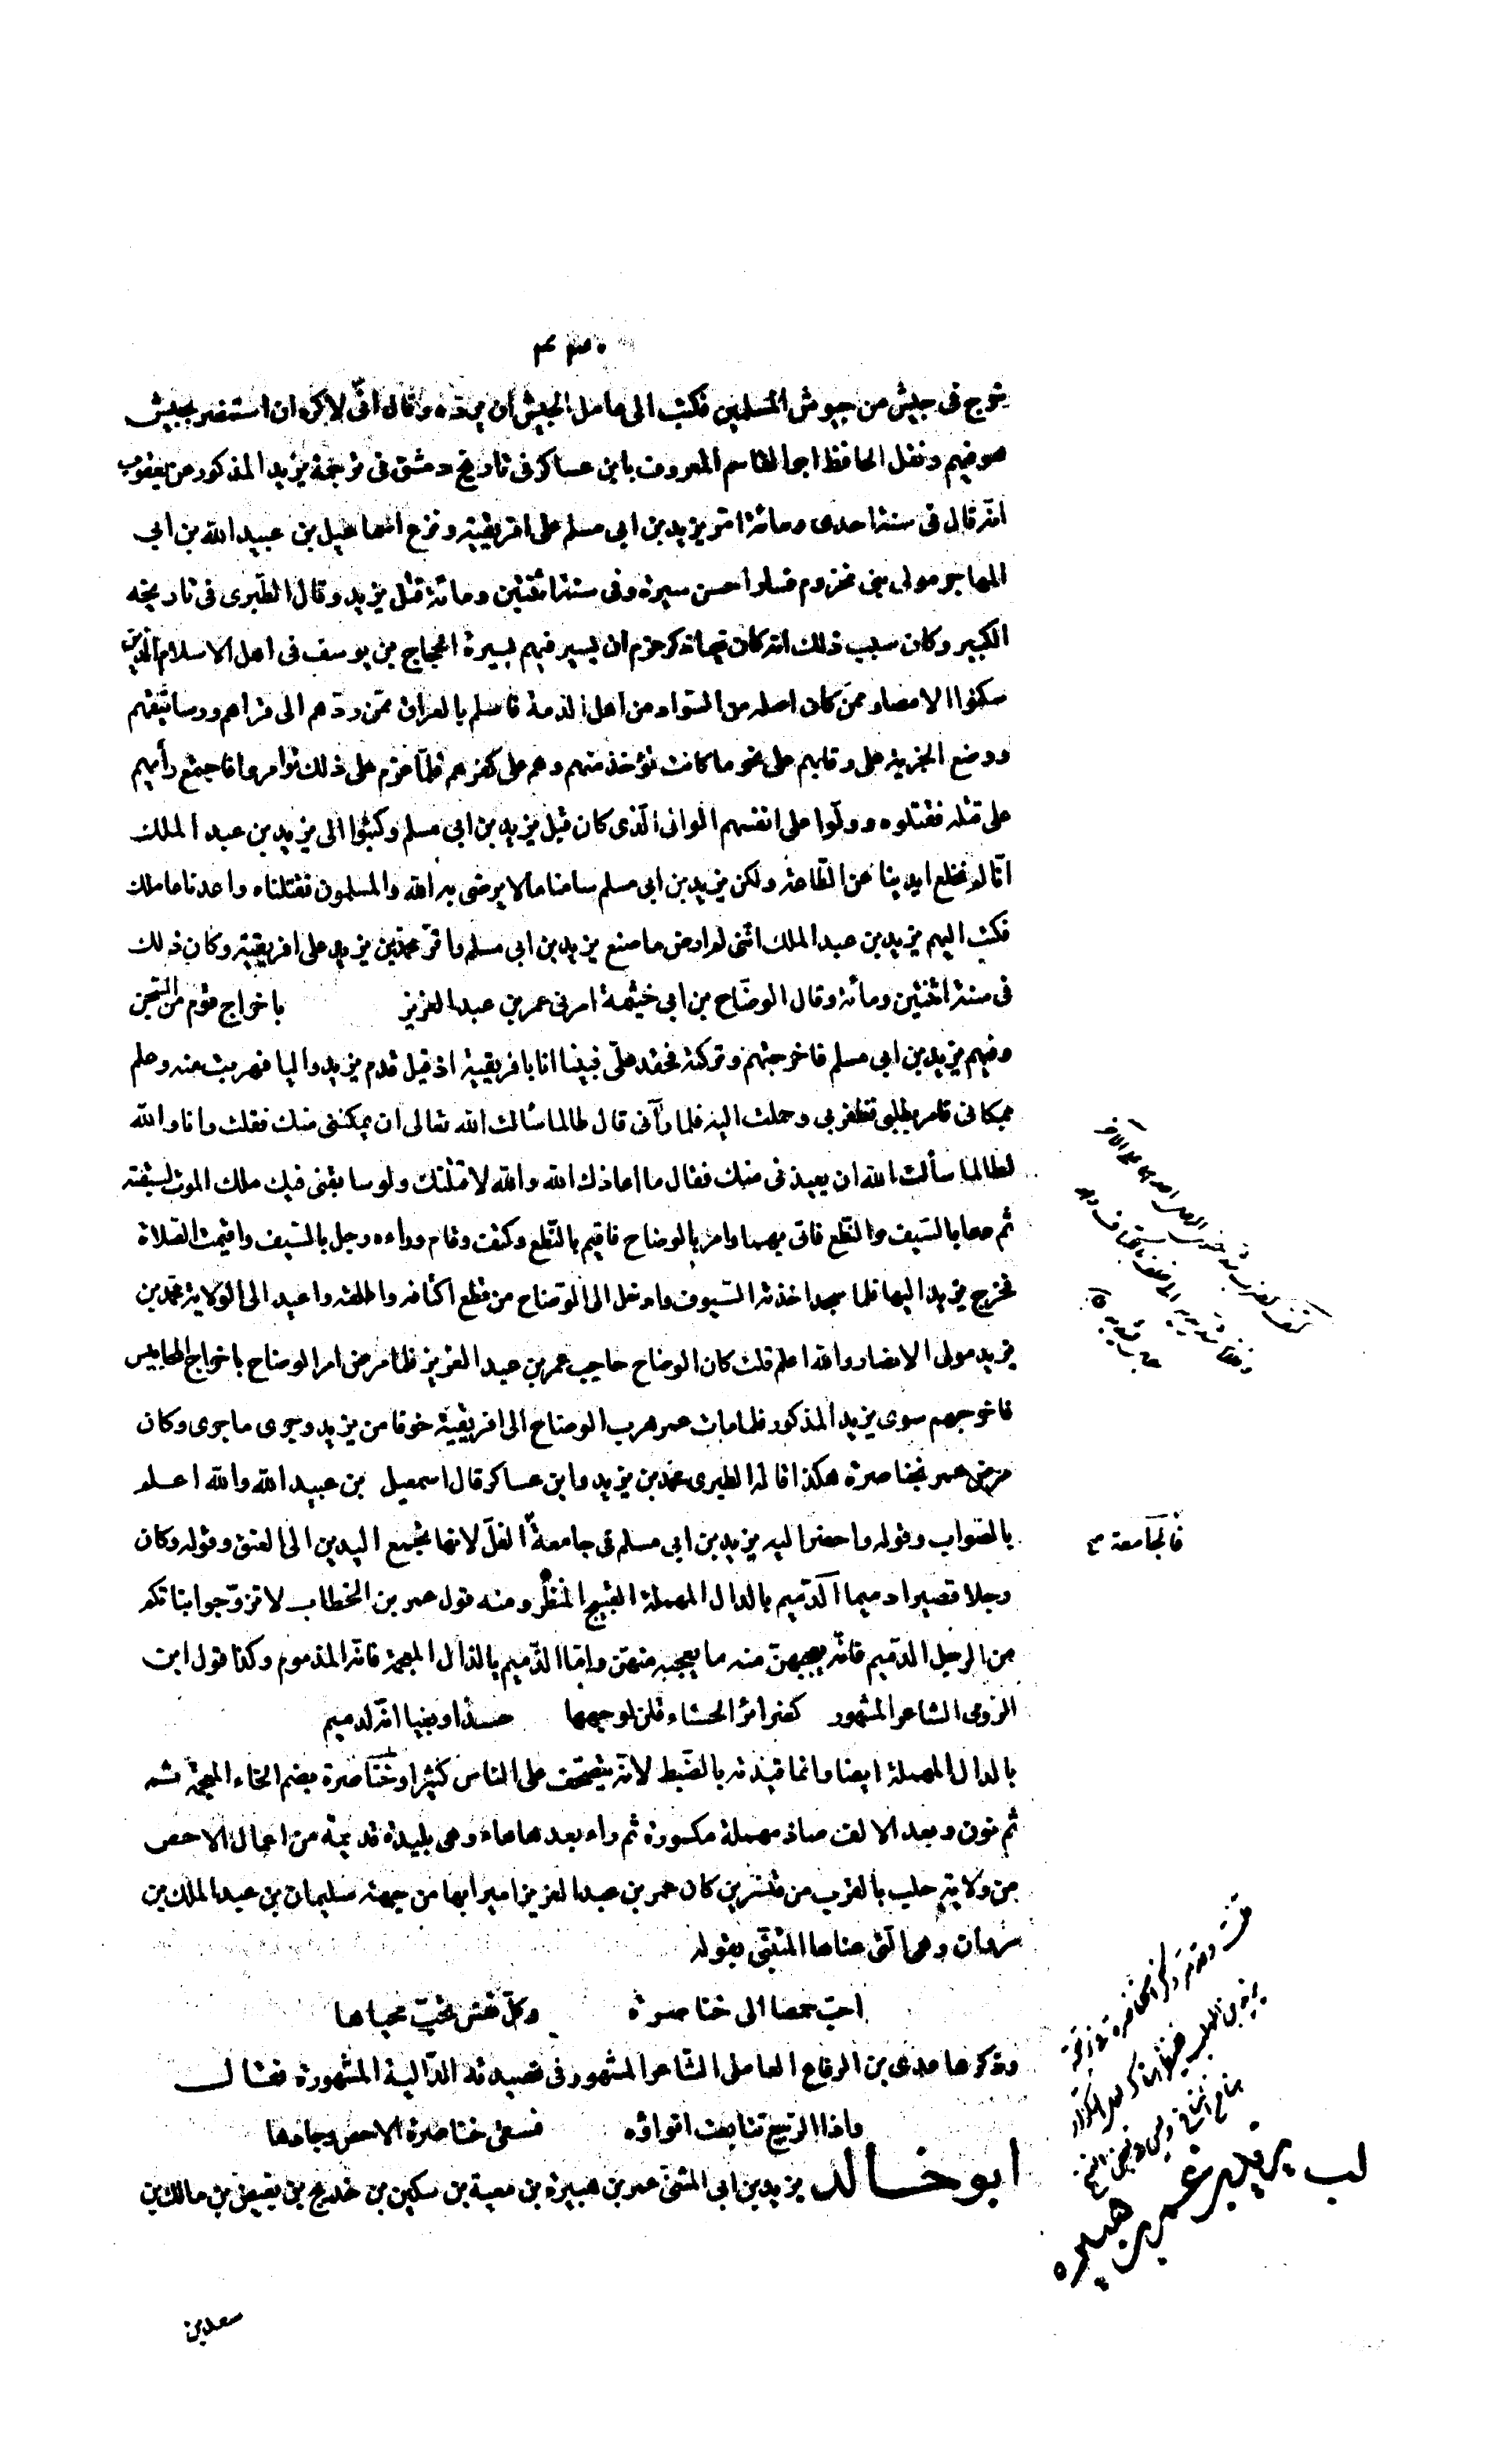 يخرج فى جيش من جيوش المسلمين فكتب الى عامل الجيش ان يرده وقال انى لاكره ان استنصر بجيش
هو فيهم ونقل الحافظ ابو القاسم المعروف بابن عساكر فى تاريخ دمشق فى ترجمة يزيد المذكور عن يعقوب
انه قال فى سنة احدى ومائة امر يزيد بن ابى مسلم على افريقية ونزع اسماعيل بن عبيد الله بن ابى
المهاجر مولى بنى مخزوم فسار احسن سيرة وفى سنة اثنتين ومائة قتل يزيد وقال الطبرى فى تاريخه
الكبير وكان سبب ذلك انه كان فيما ذكر عزم ان يسير فيهم بسيرة الحجاج بن يوسف فى اهل الاسلام الذين
سكنوا الامصار ممن كان اصله من السواد من اهل الذمة فاسلم بالعراق ممن ردهم الى قراهم ورساتيقهم
ووضع الجزية على رقابهم على نحو ما كانت تؤخذ منهم وهم على كفرهم فلما عزم على ذلك توامروا فاجتمع رأيهم
على قتله فقتلوه وولوا على انفسهم الوالى الذى كان قبل يزيد بن ابى مسلم وكتبوا الى يزيد بن عبد الملك
انا لم نخلع ايدينا عن الطاعة ولكن يزيد بن ابى مسلم سامنا مالا يرضى به الله والمسلمون فقتلناه واعدنا عاملك
فكتب اليهم يزيد بن عبد الملك اننى لم ارض ما صنع يزيد بن ابى مسلم واقر محمد بن يزيد على افريقية وكان ذلك
فى سنة اثنتين ومائة وقال الوضاح بن ابى خيثمة امرنى عمر بن عبد العزيز باخراج قوم من السجن
وفيهم يزيد بن ابى مسلم فاخرجتهم وتركته فحقد على فبينا انا بافريقية اذ قيل قدم يزيد واليا فهربت منه وعلم
بمكانى فامر بطلبى فظفر بى وحملت اليه فلما رآنى قال طالما سألت الله تعالى ان يمكننى منك فقلت وانا والله
لطالما سألت الله ان يعيذنى منك فقال ما اعاذك الله والله لاقتلنك ولو سابقنى فيك ملك الموت لسبقته
ثم دعا بالسيف والنطع فاتى بهما وامر بالوضاح فاقيم بالنطع وكتف وقام وراءه رجل بالسيف واقيمت الصلاة
فخرج يزيد اليها فلما سجد اخذته السيوف وادخل الى الوضاح من قطع اكتافه واطلقه واعيد الى الولاية محمد بن
يزيد مولى الانصار والله اعلم قلت كان الوضاح حاجب عمر بن عبد العزيز فلما مرض امر الوضاح باخراج المحابيس
فاخرجهم سوى يزيد المذكور فلما مات عمر هرب الوضاح الى افريقية خوفا من يزيد وجرى ما جرى وكان
مرض عمر بخناصرة هكذا قاله الطبرى محمد بن يزيد وابن عساكر قال اسمعيل بن عبيد الله والله اعلم
بالصواب وقوله واحضر اليه يزيد بن ابى مسلم فى جامعة الغل لانها تجمع اليدين الى العنق وقوله وكان
فالجامعة
رجلا قصيرا دميما الدميم بالدال المهملة القبيح المنظر ومنه قول عمر بن الخطاب لا تزوجوا بناتكم
من الرجل الدميم فانه يعجبهن منه ما يعجبه منهن واما الذميم بالذال المعجمة فانه المذموم وكذا قول ابن
الرومى الشاعر المشهور كضرائر الحسناء قلن لوجهها حسدا وبغيا انه لدميم
بالدال المهملة ايضا وانما قيدته بالضبط لانه يتصحف على الناس كثيرا وخناصرة بضم الخاء المعجمة
ثم نون وبعد الالف صاد مهملة مكسورة ثم راء بعدها هاء وهى بليدة قديمة من اعمال الاحص
من ولاية حلب بالقرب من قنسرين كان عمر بن عبد العزيز اميرا بها من جهة سليمان بن عبد الملك بن
مروان وهى التى عناها المتنبى بقوله
احب حمصا الى خناصرة وكل نفس تحب محياها
وذكرها عدى بن الرقاع العاملى الشاعر المشهور فى قصيدته الدالية المشهورة فقال
واذا الربيع تتابعت انواؤه فسقى خناصرة الاحص وجادها
ابو خالد يزيد بن ابى المثنى عمر بن هبيرة بن معية بن سكين بن خديج بن بغيض بن مالك بن
يزيد بن عمر بن هبيره
سعد بن